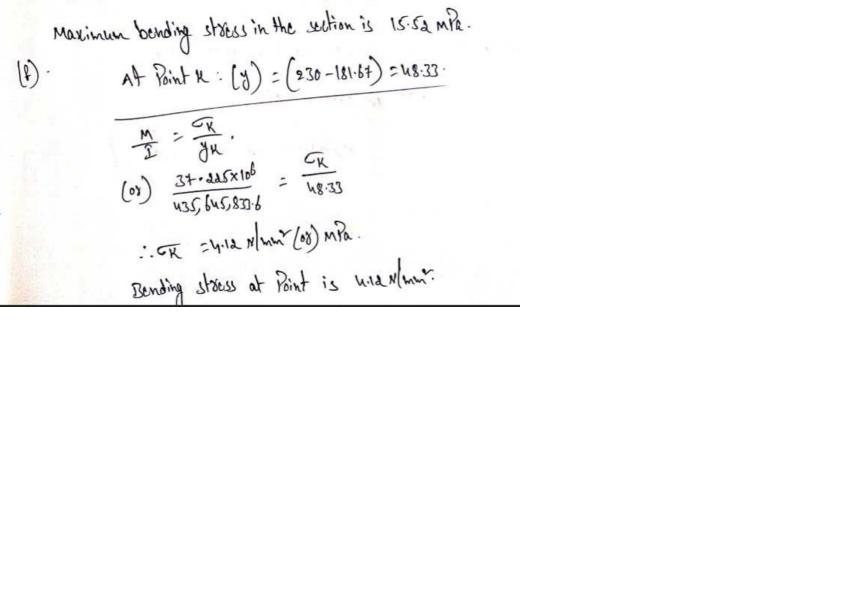 Maximum bending stress in the section is 15.52 MPa.
(f). At Point K : (y) = (230 - 181.67) = 48.33.
M/I = σK/yK.
(or) 37.225×10⁶/435,645,833.6 = σK/48.33
∴ σK = 4.12 N/mm² (or) MPa.
Bending stress at Point is 4.12 N/mm².